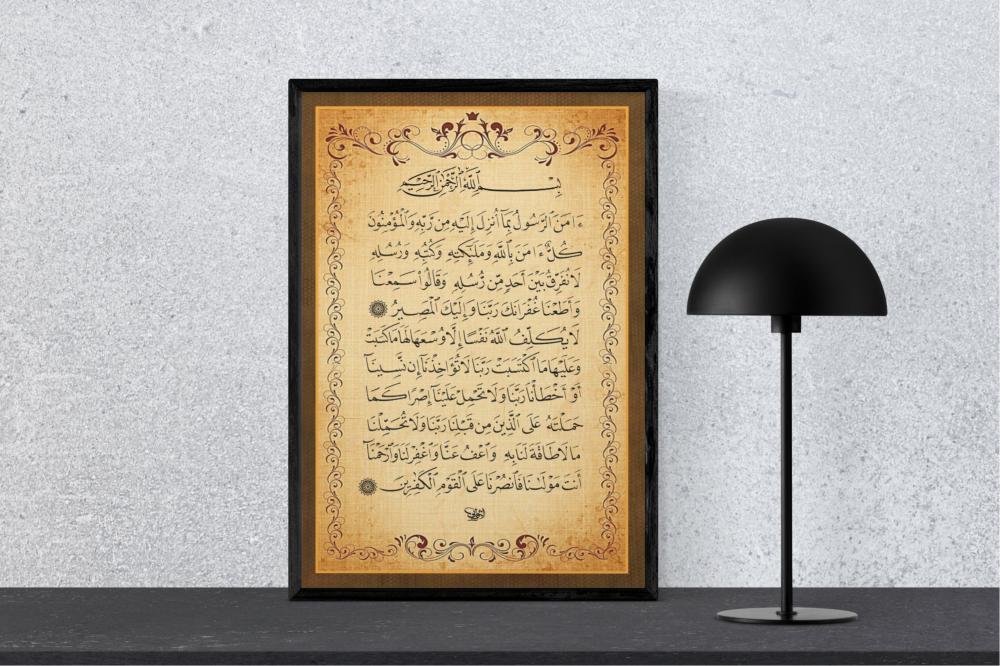 بِسْمِ ٱللَّهِ ٱلرَّحْمَٰنِ ٱلرَّحِيمِ
ءَامَنَ ٱلرَّسُولُ بِمَآ أُنزِلَ إِلَيْهِ مِن رَّبِّهِۦ وَٱلْمُؤْمِنُونَ
كُلٌّ ءَامَنَ بِٱللَّهِ وَمَلَٰٓئِكَتِهِۦ وَكُتُبِهِۦ وَرُسُلِهِۦ
لَا نُفَرِّقُ بَيْنَ أَحَدٍ مِّن رُّسُلِهِۦ وَقَالُوا۟ سَمِعْنَا
وَأَطَعْنَا غُفْرَانَكَ رَبَّنَا وَإِلَيْكَ ٱلْمَصِيرُ
لَا يُكَلِّفُ ٱللَّهُ نَفْسًا إِلَّا وُسْعَهَا لَهَا مَا كَسَبَتْ
وَعَلَيْهَا مَا ٱكْتَسَبَتْ رَبَّنَا لَا تُؤَاخِذْنَآ إِن نَّسِينَآ
أَوْ أَخْطَأْنَا رَبَّنَا وَلَا تَحْمِلْ عَلَيْنَآ إِصْرًا كَمَا
حَمَلْتَهُۥ عَلَى ٱلَّذِينَ مِن قَبْلِنَا رَبَّنَا وَلَا تُحَمِّلْنَا
مَا لَا طَاقَةَ لَنَا بِهِۦ وَٱعْفُ عَنَّا وَٱغْفِرْ لَنَا وَٱرْحَمْنَآ
أَنتَ مَوْلَىٰنَا فَٱنصُرْنَا عَلَى ٱلْقَوْمِ ٱلْكَٰفِرِينَ